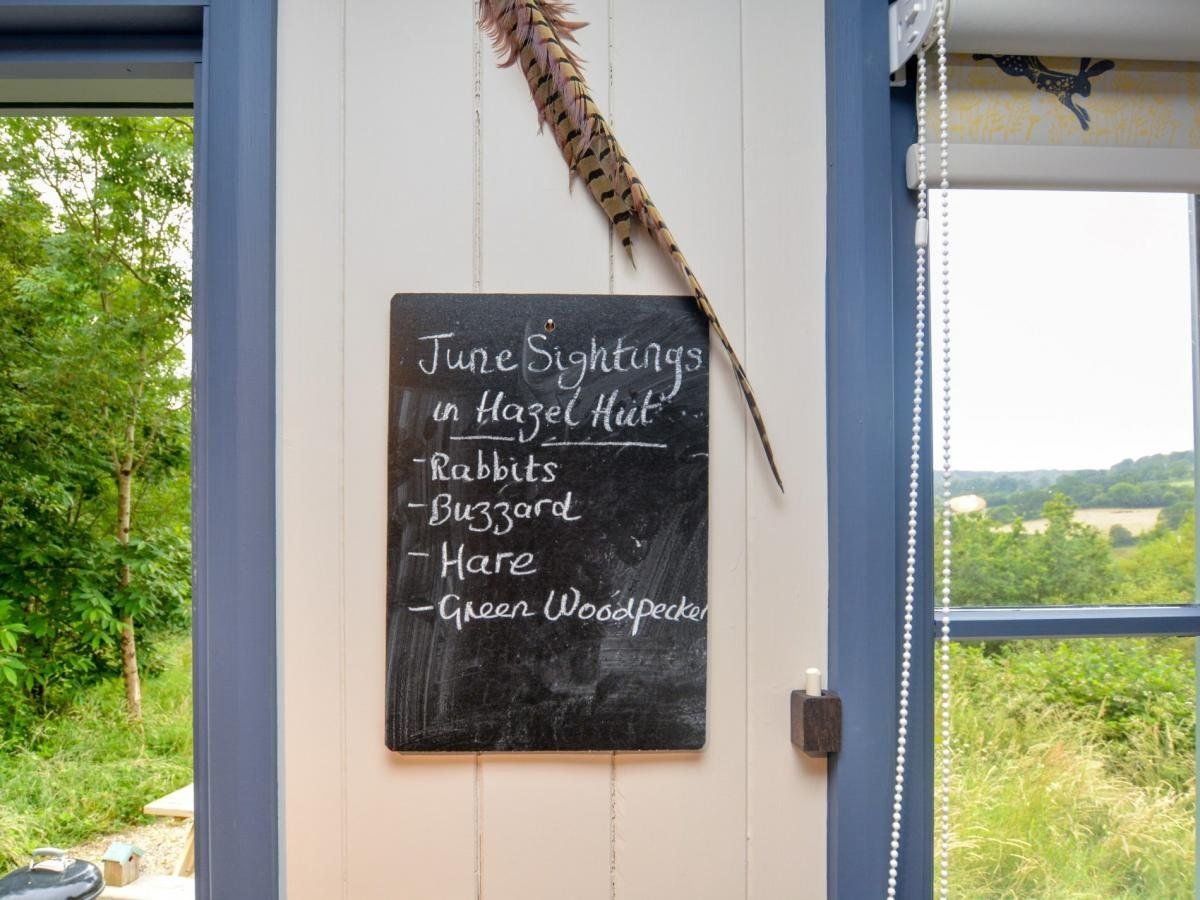 June Sightings
in Hazel Hut
- Rabbits
- Buzzard
- Hare
- Green Woodpecker